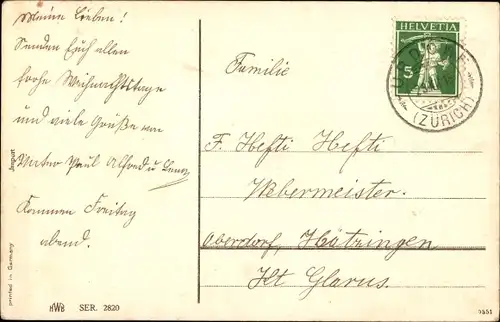 Meine Lieben!
Senden Euch allen
frohe Weihnachtstage
und viele Grüße von
Vater Paul Alfred u
Kommen Freitag
abend.
Import
printed in Germany
HWB SER. 2820
Familie
F. Hefti Hefti
Webermeister.
Oberdorf, Hätzingen
Kt Glarus.
HELVETIA
5
(ZÜRICH)
5551